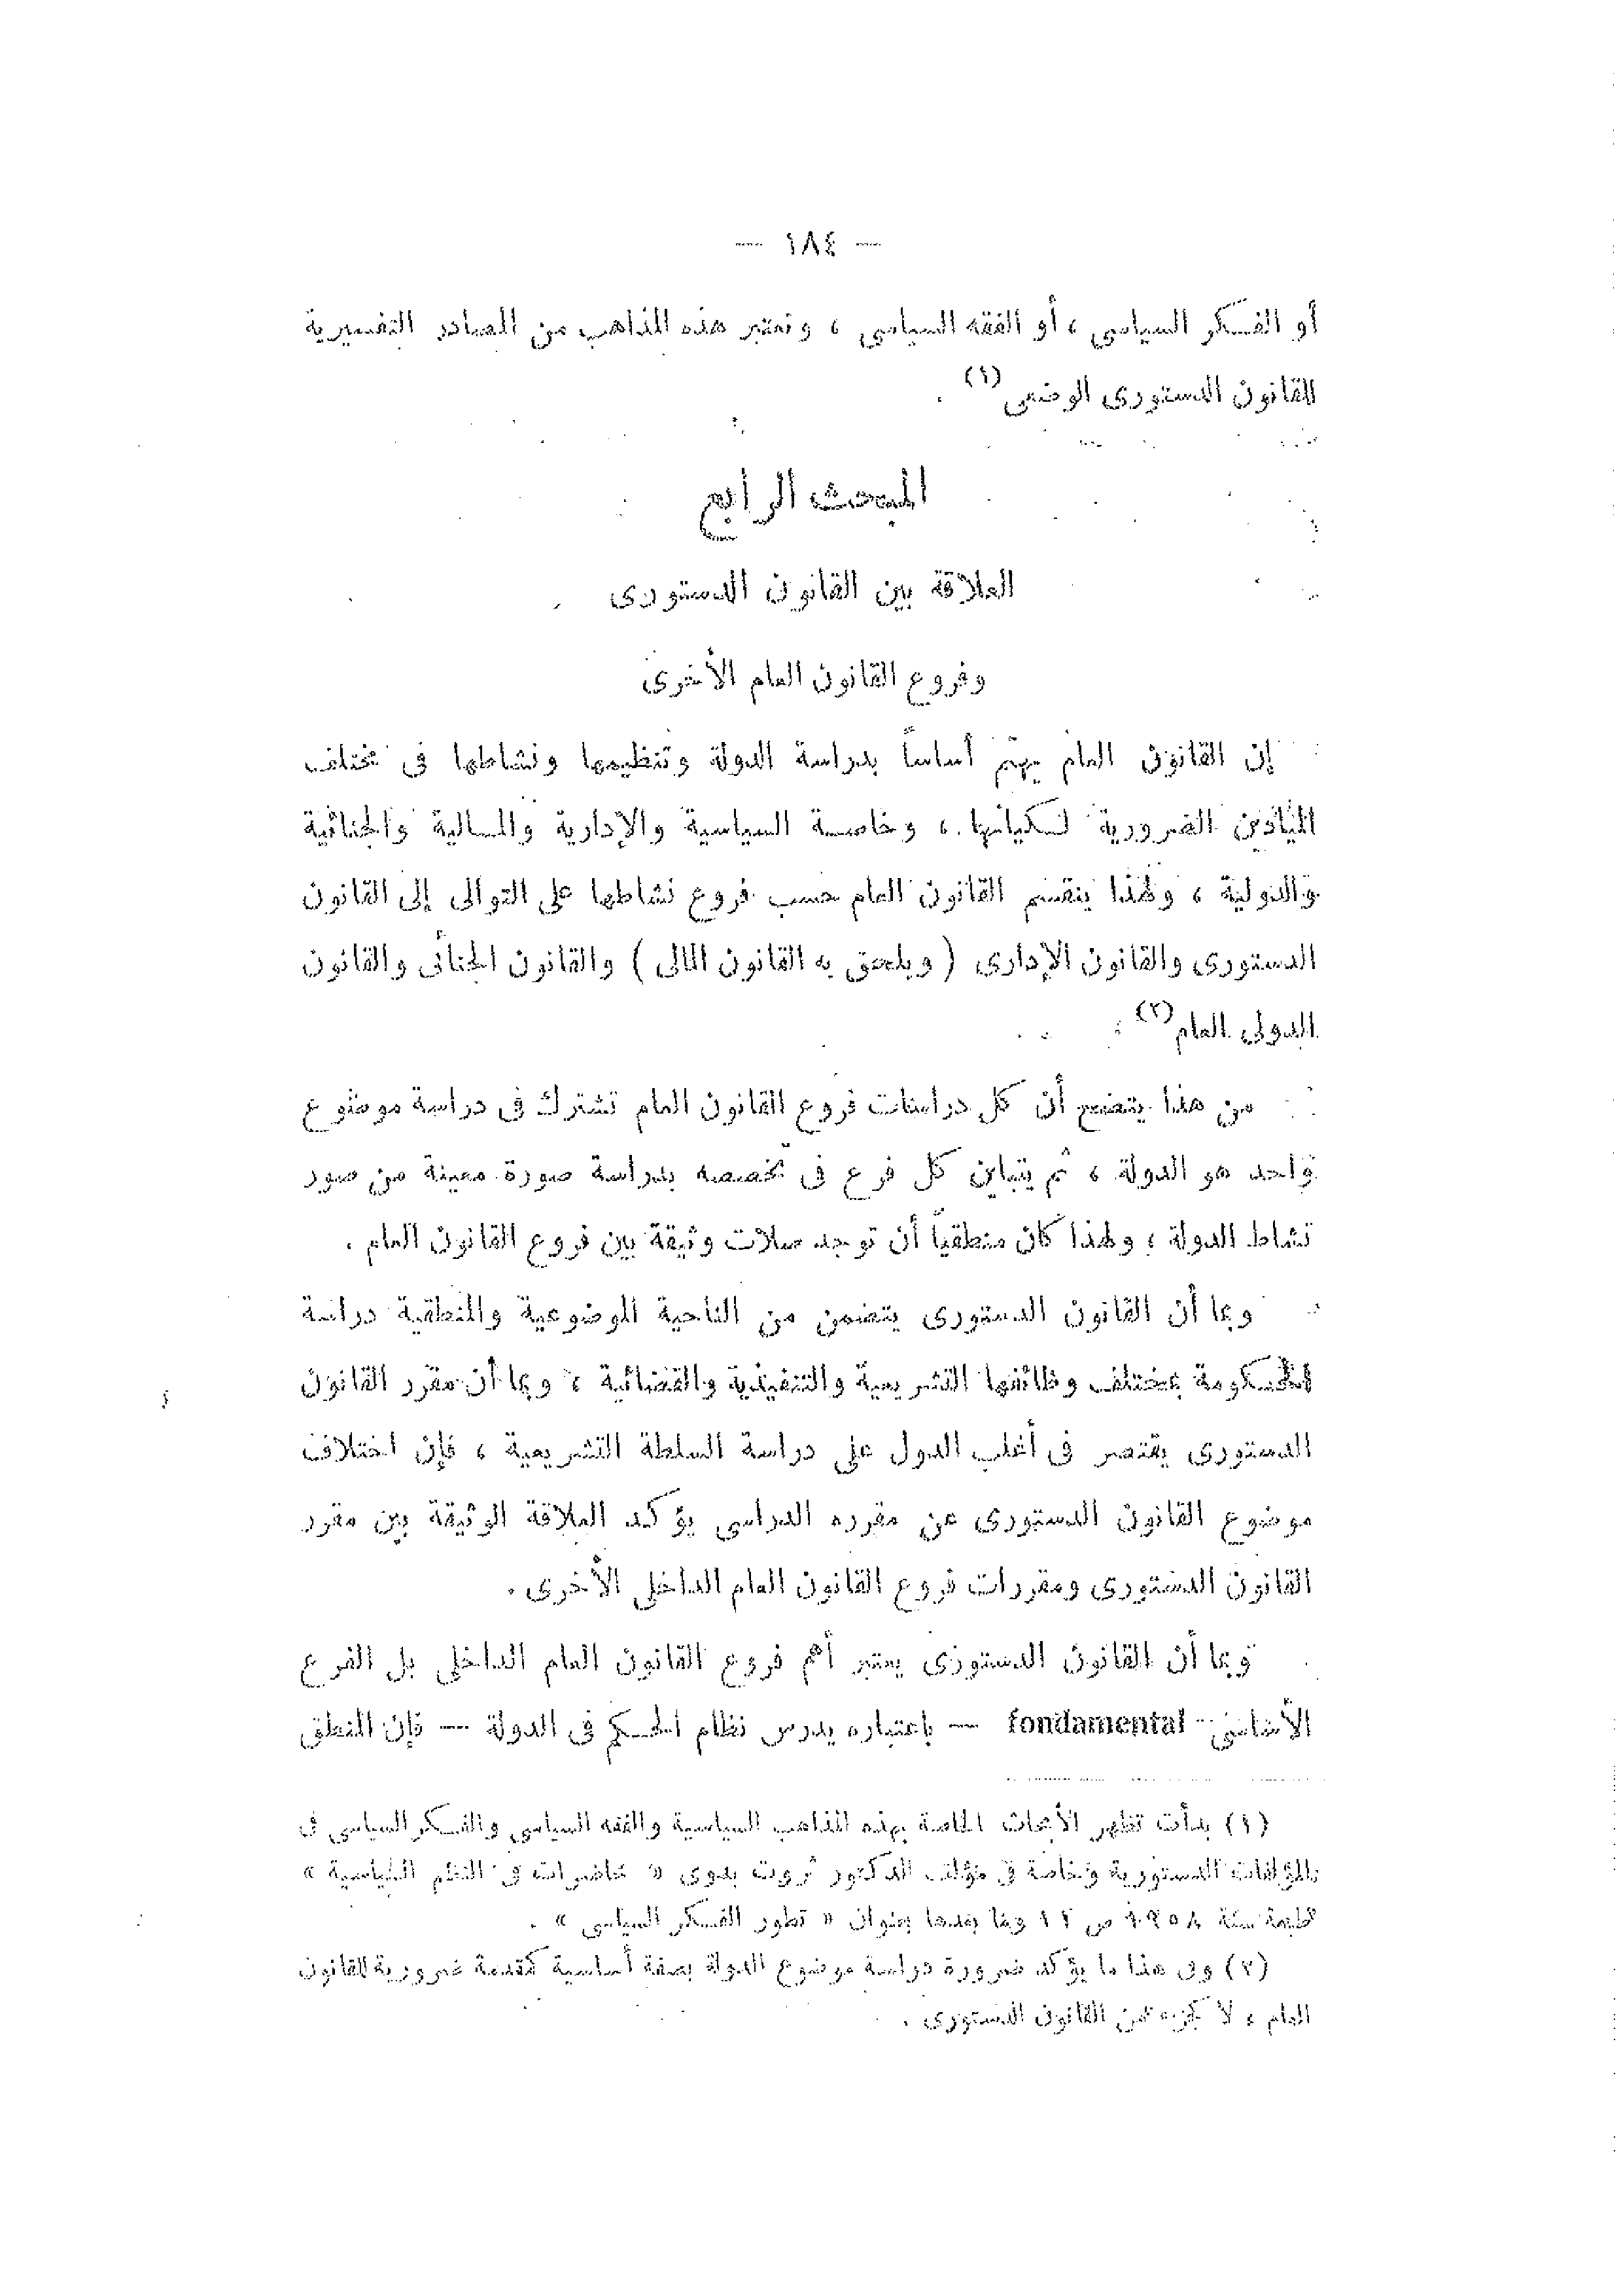 — ١٨٤ —
أو الفكر السياسى ، أو الفقه السياسى ، وتعتبر هذه المذاهب من المصادر التفسيرية
للقانون الدستورى الوضعى (١) .
المبحث الرابع
العلاقة بين القانون الدستورى
وفروع القانون العام الأخرى
إن القانون العام يهتم أساساً بدراسة الدولة وتنظيمها ونشاطها فى مختلف
الميادين الضرورية لكيانها ، وخاصة السياسية والإدارية والمالية والجنائية
والدولية ، ولهذا ينقسم القانون العام حسب فروع نشاطها على التوالى إلى القانون
الدستورى والقانون الإدارى ( ويلحق به القانون المالى ) والقانون الجنائى والقانون
الدولى العام (٢) .
من هذا يتضح أن كل دراسات فروع القانون العام تشترك فى دراسة موضوع
واحد هو الدولة ، ثم يتباين كل فرع فى تخصصه بدراسة صورة معينة من صور
نشاط الدولة ، ولهذا كان منطقياً أن توجد صلات وثيقة بين فروع القانون العام .
وبما أن القانون الدستورى يتضمن من الناحية الموضوعية والمنطقية دراسة
الحكومة بمختلف وظائفها التشريعية والتنفيذية والقضائية ، وبما أن مقرر القانون
الدستورى يقتصر فى أغلب الدول على دراسة السلطة التشريعية ، فإن اختلاف
موضوع القانون الدستورى عن مقرره الدراسى يؤكد العلاقة الوثيقة بين مقرر
القانون الدستورى ومقررات فروع القانون العام الداخلى الأخرى .
وبما أن القانون الدستورى يعتبر أهم فروع القانون العام الداخلى بل الفرع
الأساسى fondamental — باعتباره يدرس نظام الحكم فى الدولة — فإن المنطق
(١) بدأت تظهر الأبحاث الخاصة بهذه المذاهب السياسية والفقه السياسى والفكر السياسى فى
المؤلفات الدستورية وخاصة فى مؤلف الدكتور ثروت بدوى « محاضرات فى النظم السياسية »
طبعة سنة ١٩٥٨ ص ١٢ وما بعدها بعنوان « تطور الفكر السياسى » .
(٢) وفى هذا ما يؤكد ضرورة دراسة موضوع الدولة بصفة أساسية كمقدمة ضرورية للقانون
العام ، لا كجزء من القانون الدستورى .